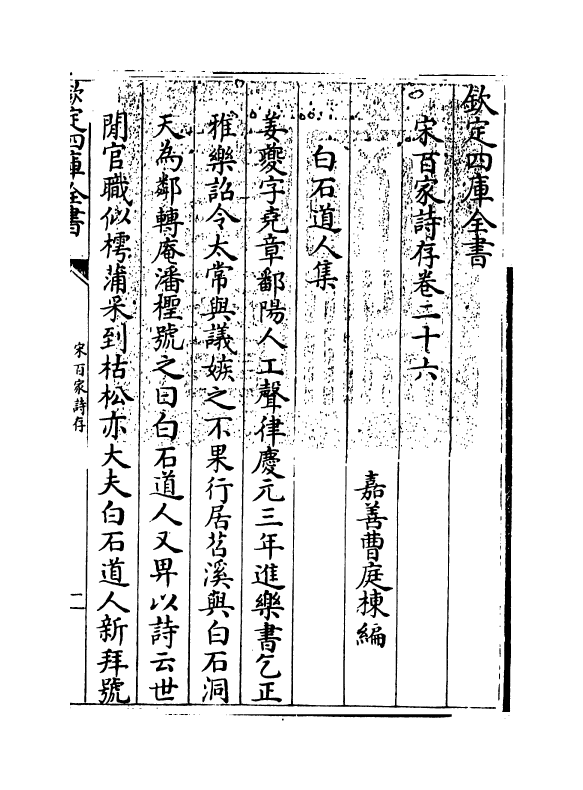 欽定四庫全書
宋百家詩存卷二十六
嘉善曹庭棟編
白石道人集
姜夔字堯章鄱陽人工聲律慶元三年進樂書乞正
雅樂詔令太常與議嫉之不果行居苕溪與白石洞
天為鄰轉庵潘檉號之曰白石道人又畀以詩云世
間官職似樗蒲采到枯松亦大夫白石道人新拜號
欽定四庫全書
宋百家詩存